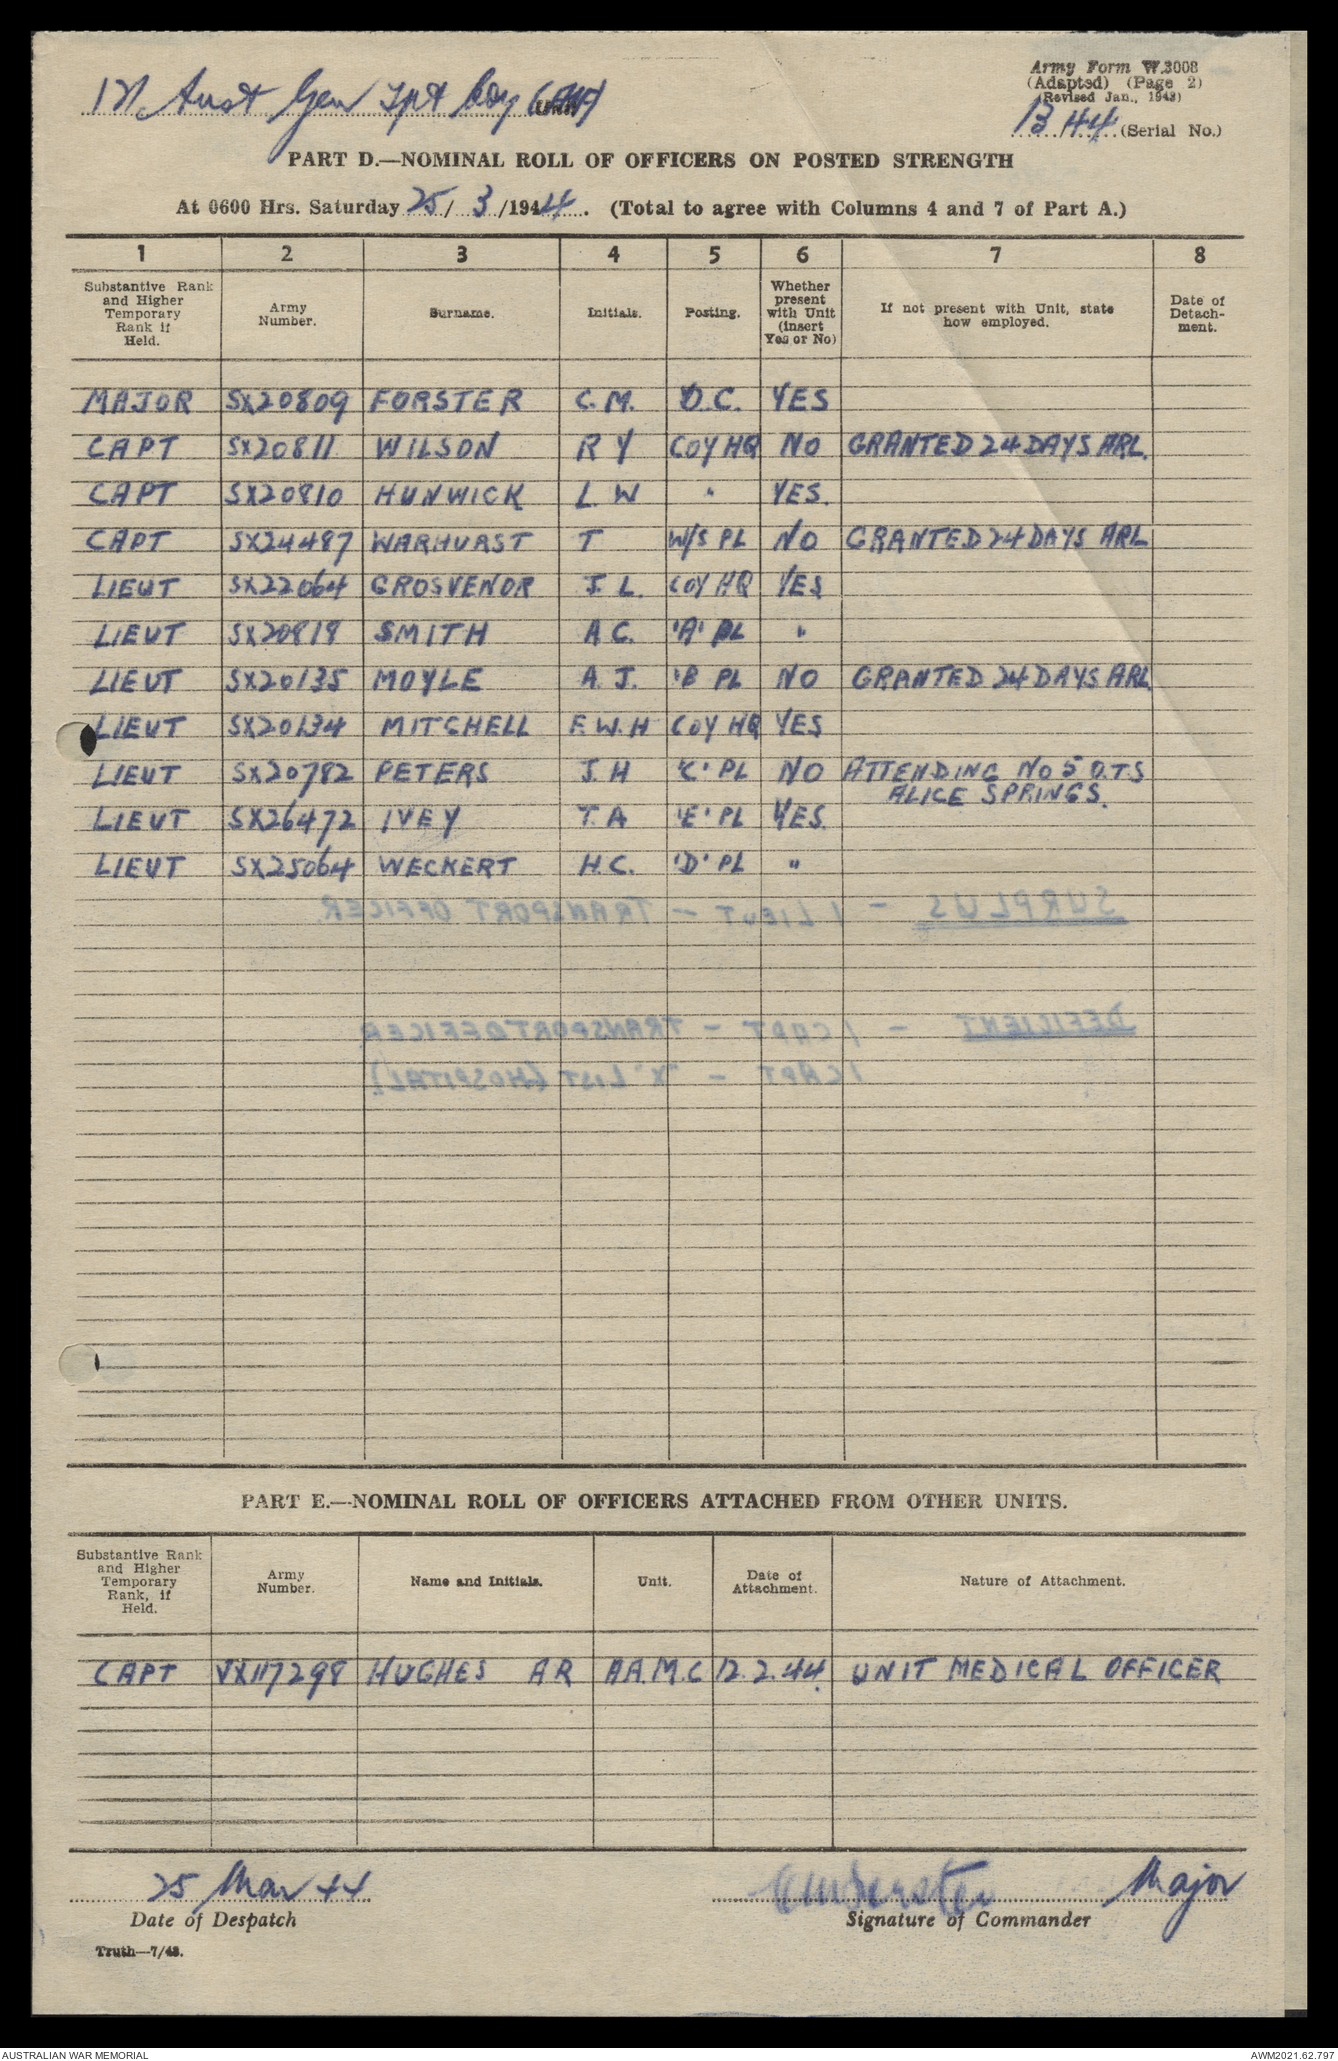 121 Aust Gen Tpt Coy (AIF)
(Unit)
Army Form W.3008
(Adapted) (Page 2)
(Revised Jan., 1943)
13 H4 (Serial No.)
PART D.—NOMINAL ROLL OF OFFICERS ON POSTED STRENGTH
At 0600 Hrs. Saturday 25/ 3 /1944. (Total to agree with Columns 4 and 7 of Part A.)
1 2 3 4 5 6 7 8
Substantive Rank and Higher Temporary Rank if Held. Army Number. Surname. Initials. Posting. Whether present with Unit (insert Yes or No) If not present with Unit, state how employed. Date of Detach-ment.
MAJOR SX20809 FORSTER C. M. O.C. YES
CAPT SX20811 WILSON R Y COY HQ NO GRANTED 24 DAYS ARL.
CAPT SX20810 HUNWICK L. W " YES.
CAPT SX24487 WARHURST T W/S PL NO GRANTED 24 DAYS ARL
LIEUT SX22064 GROSVENOR J. L. COY HQ YES
LIEUT SX20818 SMITH A C. 'A' PL "
LIEUT SX20135 MOYLE A. J. 'B PL NO GRANTED 24 DAYS ARL
LIEUT SX20134 MITCHELL F. W. H COY HQ YES
LIEUT SX20782 PETERS J. H 'C' PL NO ATTENDING No 5 O.T.S
ALICE SPRINGS.
LIEUT SX26472 IVEY T. A 'E' PL YES.
LIEUT SX25064 WECKERT H. C. 'D' PL "
SURPLUS – 1 LIEUT – TRANSPORT OFFICER
DEFICIENT – 1 CAPT – TRANSPORT OFFICER
1 CAPT – "X" LIST (HOSPITAL)
PART E.—NOMINAL ROLL OF OFFICERS ATTACHED FROM OTHER UNITS.
Substantive Rank and Higher Temporary Rank, if Held. Army Number. Name and Initials. Unit. Date of Attachment. Nature of Attachment.
CAPT VX117298 HUGHES A R AA.M.C 12.2.44. UNIT MEDICAL OFFICER
25 Mar 44 CMForster Major
Date of Despatch Signature of Commander
Truth—7/43.
AUSTRALIAN WAR MEMORIAL AWM2021.62.797